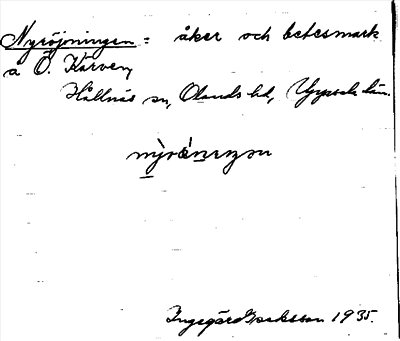 Nyröjningen = åker och betesmark
å Ö. Karven,
Hållnäs sn, Olands hd, Uppsala län.
Ingegärd Isaksson 1935.